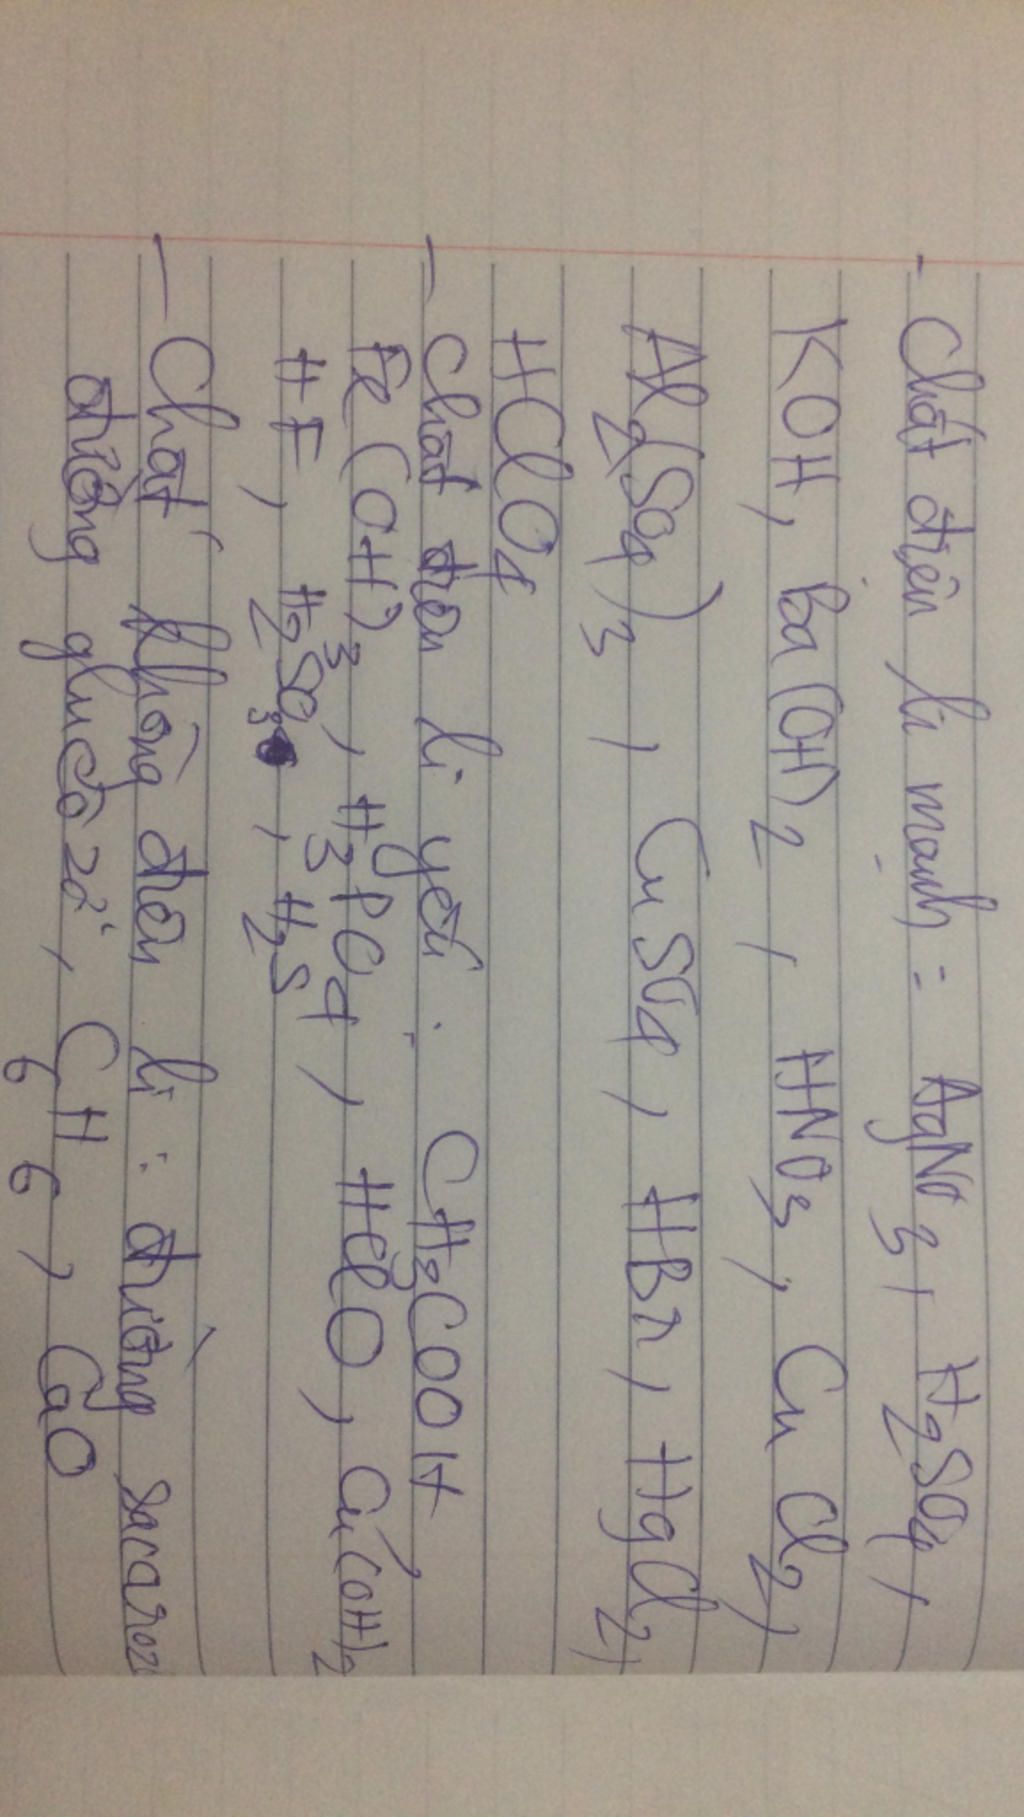 - Chất điện li mạnh = AgNO3, H2SO4,
KOH, Ba(OH)2, HNO3, CuCl2,
Al2(SO4)3, CuSO4, HBr, HgCl2,
HClO4
- Chất điện li yếu : CH3COOH,
Fe(OH)3, H3PO4, HClO, Cu(OH)2
HF, H2SO3, H2S
- Chất không điện li : đường sacaroz
đường glucôzơ, C6H6, CaO